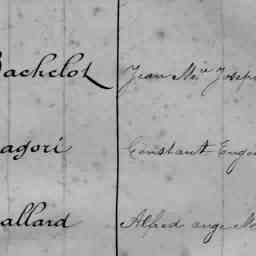 Bachelot Jean Mie Joseph
agori Constant Eugè
allard Alfred ange M